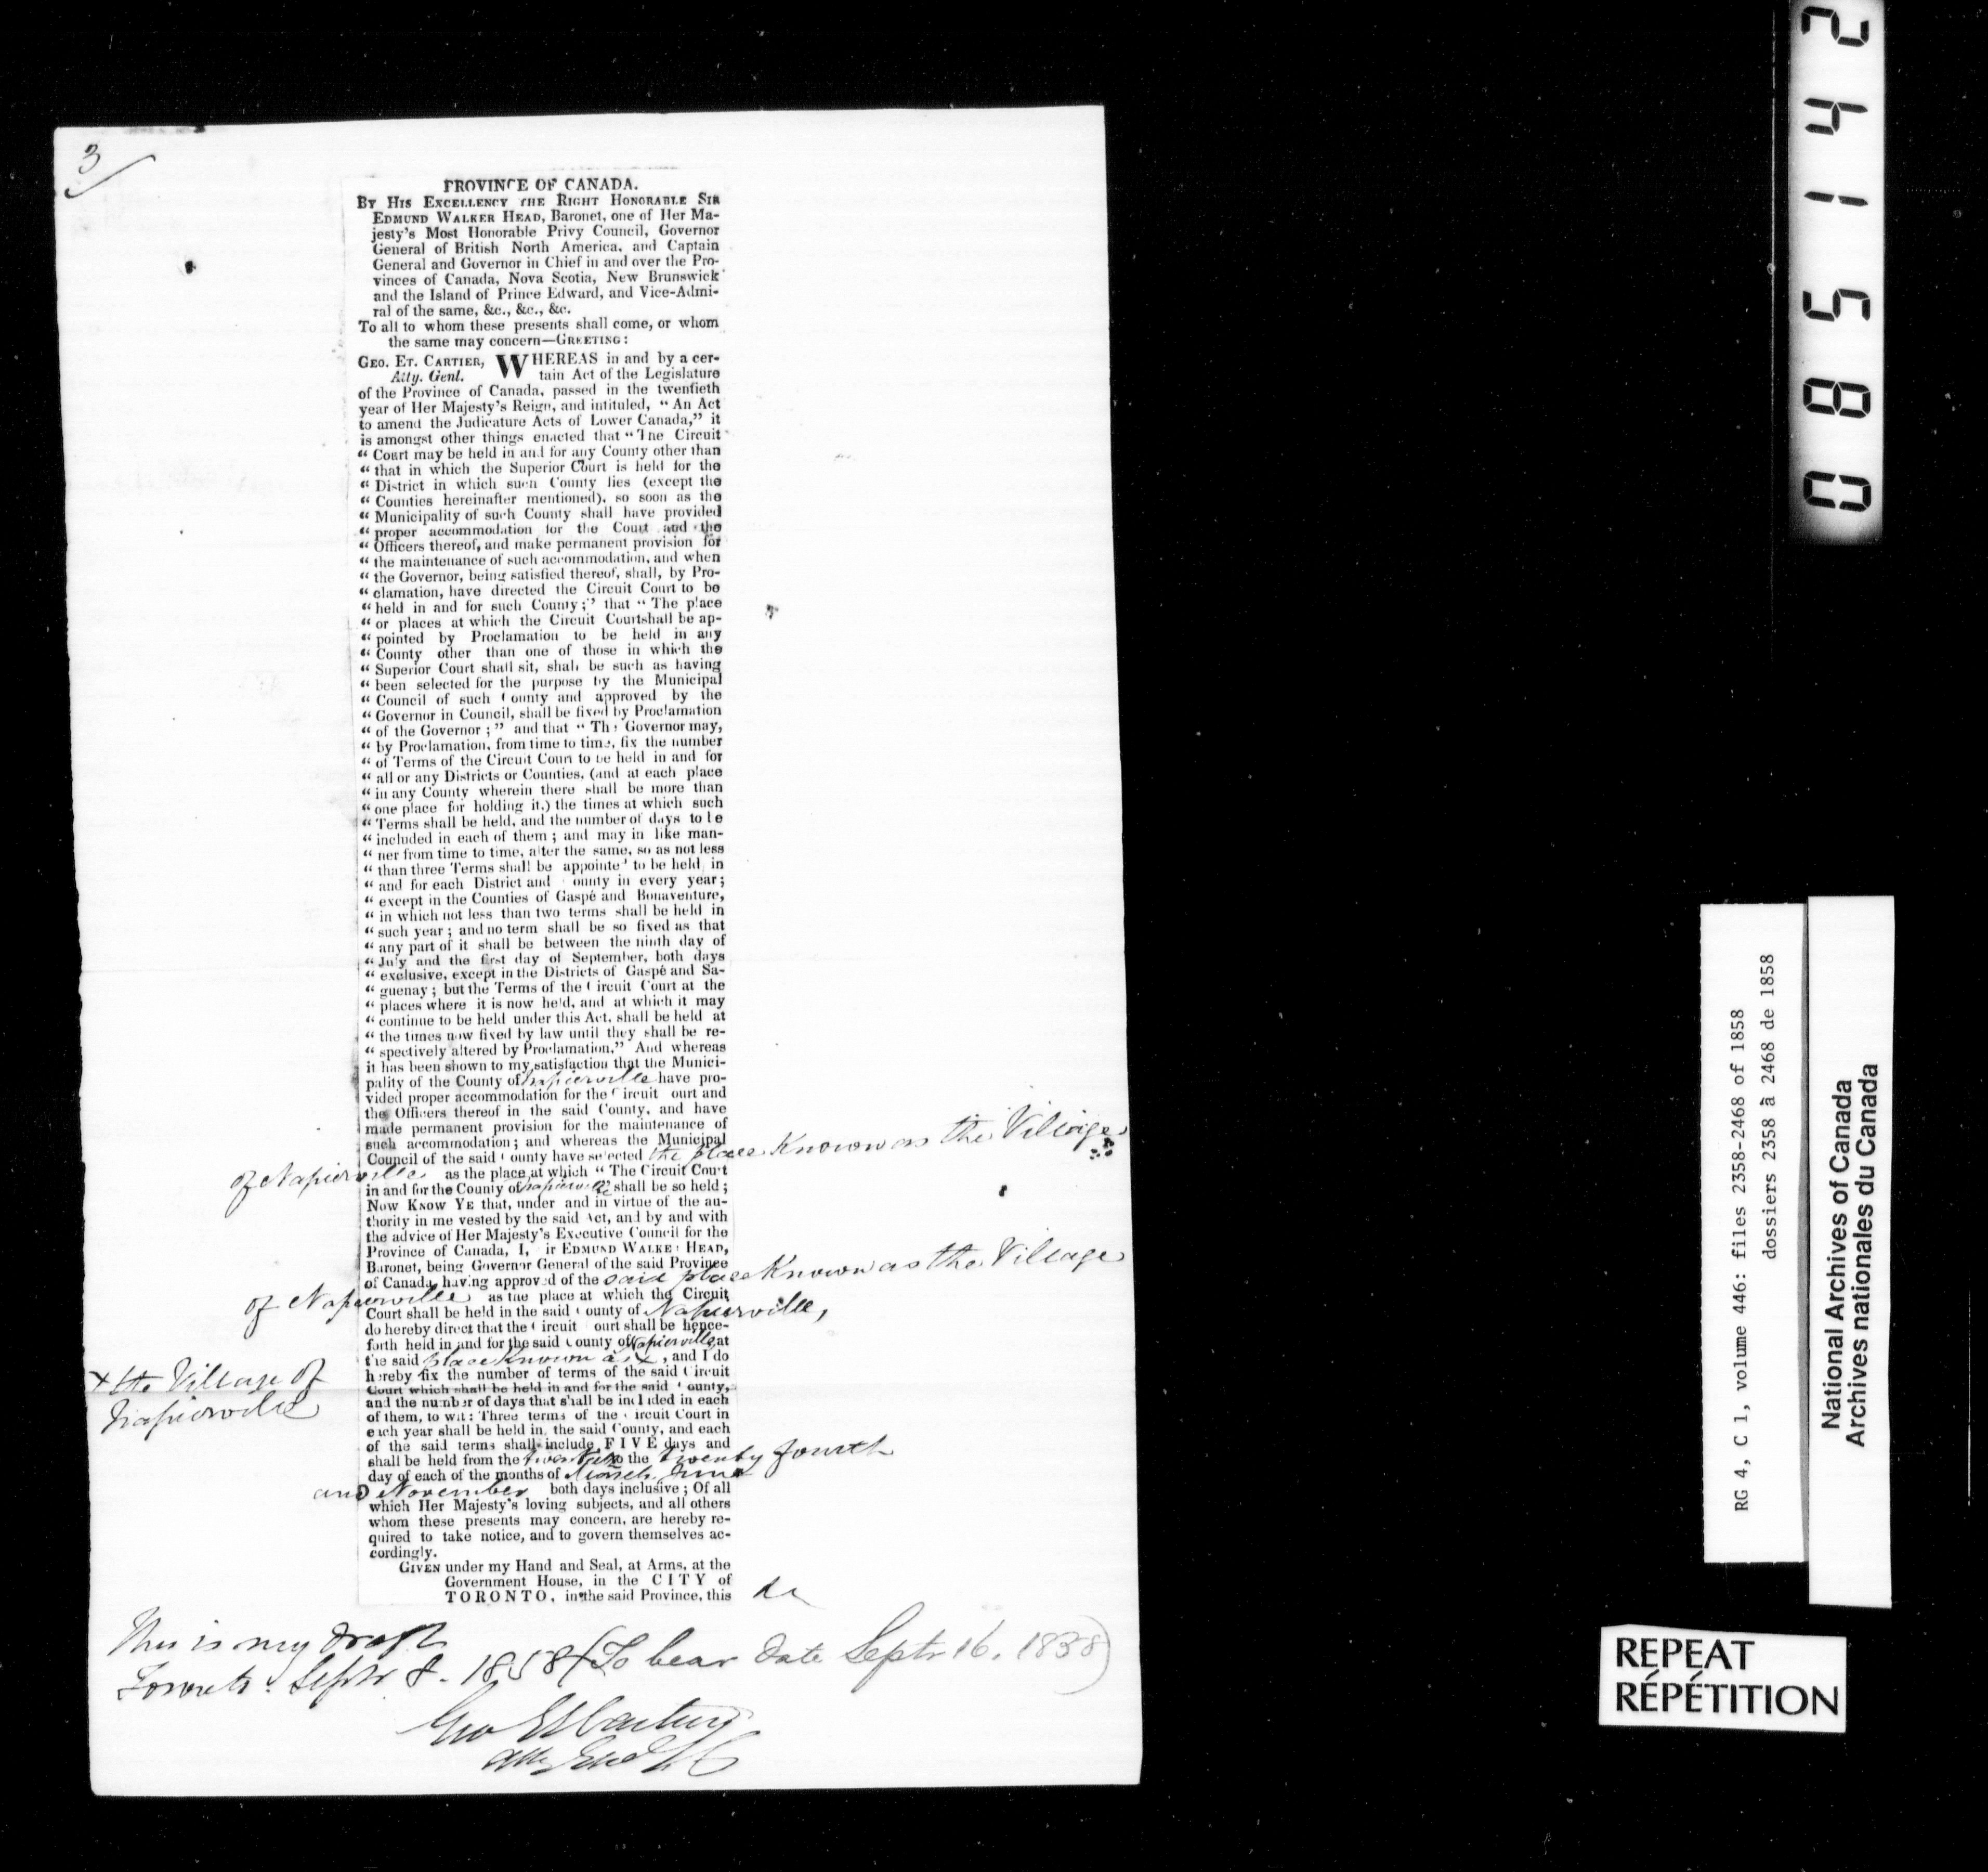 3
PROVINCE OF CANADA.
BY HIS EXCELLENCY THE RIGHT HONORABLE SIR
EDMUND WALKER HEAD, Baronet, one of Her Ma-
jesty's Most Honorable Privy Council, Governor
General of British North America, and Captain
General and Governor in Chief in and over the Pro-
vinces of Canada, Nova Scotia, New Brunswick
and the Island of Prince Edward, and Vice-Admi-
ral of the same, &c., &c., &c.
To all to whom these presents shall come, or whom
the same may concern—GREETING:
GEO. ET. CARTIER, WHEREAS in and by a cer-
Atty. Genl. tain Act of the Legislature
of the Province of Canada, passed in the twentieth
year of Her Majesty's Reign, and intituled, "An Act
to amend the Judicature Acts of Lower Canada," it
is amongst other things enacted that "The Circuit
" Court may be held in and for any County other than
" that in which the Superior Court is held for the
" District in which such County lies (except the
" Counties hereinafter mentioned), so soon as the
" Municipality of such County shall have provided
" proper accommodation for the Court and the
" Officers thereof, and make permanent provision for
" the maintenance of such accommodation, and when
" the Governor, being satisfied thereof, shall, by Pro-
" clamation, have directed the Circuit Court to be
" held in and for such County;" that "The place
" or places at which the Circuit Courtshall be ap-
" pointed by Proclamation to be held in any
" County other than one of those in which the
" Superior Court shall sit, shall be such as having
" been selected for the purpose by the Municipal
" Council of such County and approved by the
" Governor in Council, shall be fixed by Proclamation
" of the Governor;" and that "The Governor may,
" by Proclamation, from time to time, fix the number
" of Terms of the Circuit Court to be held in and for
" all or any Districts or Counties, (and at each place
" in any County wherein there shall be more than
" one place for holding it,) the times at which such
" Terms shall be held, and the number of days to be
" included in each of them; and may in like man-
" ner from time to time, alter the same, so as not less
" than three Terms shall be appointed to be held in
" and for each District and County in every year;
" except in the Counties of Gaspé and Bonaventure,
" in which not less than two terms shall be held in
" such year; and no term shall be so fixed as that
" any part of it shall be between the ninth day of
" July and the first day of September, both days
" exclusive, except in the Districts of Gaspé and Sa-
" guenay; but the Terms of the Circuit Court at the
" places where it is now held, and at which it may
" continue to be held under this Act, shall be held at
" the times now fixed by law until they shall be re-
" spectively altered by Proclamation." And whereas
it has been shown to my satisfaction that the Munici-
pality of the County of Napierville have pro-
vided proper accommodation for the Circuit Court and
the Officers thereof in the said County, and have
made permanent provision for the maintenance of
such accommodation; and whereas the Municipal
Council of the said County have selected the place Known as the Village
of Napierville as the place at which "The Circuit Court
in and for the County of Napierville shall be so held;
NOW KNOW YE that, under and in virtue of the au-
thority in me vested by the said Act, and by and with
the advice of Her Majesty's Executive Council for the
Province of Canada, I, Sir EDMUND WALKER HEAD,
Baronet, being Governor General of the said Province
of Canada, having approved of the said place Known as the Village
of Napierville as the place at which the Circuit
Court shall be held in the said County of Napierville,
do hereby direct that the Circuit Court shall be hence-
forth held in and for the said County of Napierville at
the said place Known as x, and I do
x the Village of
Napierville
hereby fix the number of terms of the said Circuit
Court which shall be held in and for the said County,
and the number of days that shall be included in each
of them, to wit: Three terms of the Circuit Court in
each year shall be held in the said County, and each
of the said terms shall include FIVE days and
shall be held from the twentieth to the twenty fourth
day of each of the months of March June
and November both days inclusive; Of all
which Her Majesty's loving subjects, and all others
whom these presents may concern, are hereby re-
quired to take notice, and to govern themselves ac-
cordingly.
GIVEN under my Hand and Seal, at Arms, at the
Government House, in the CITY of
TORONTO, in the said Province, this
This is my draft
Toronto. Septr 8. 1858 (To bear date Septr 16. 1858)
Geo Et Cartier
Atty Genl LC
085142
RG 4, C 1, volume 446: files 2358-2468 of 1858
dossiers 2358 à 2468 de 1858
National Archives of Canada
Archives nationales du Canada
REPEAT
RÉPÉTITION